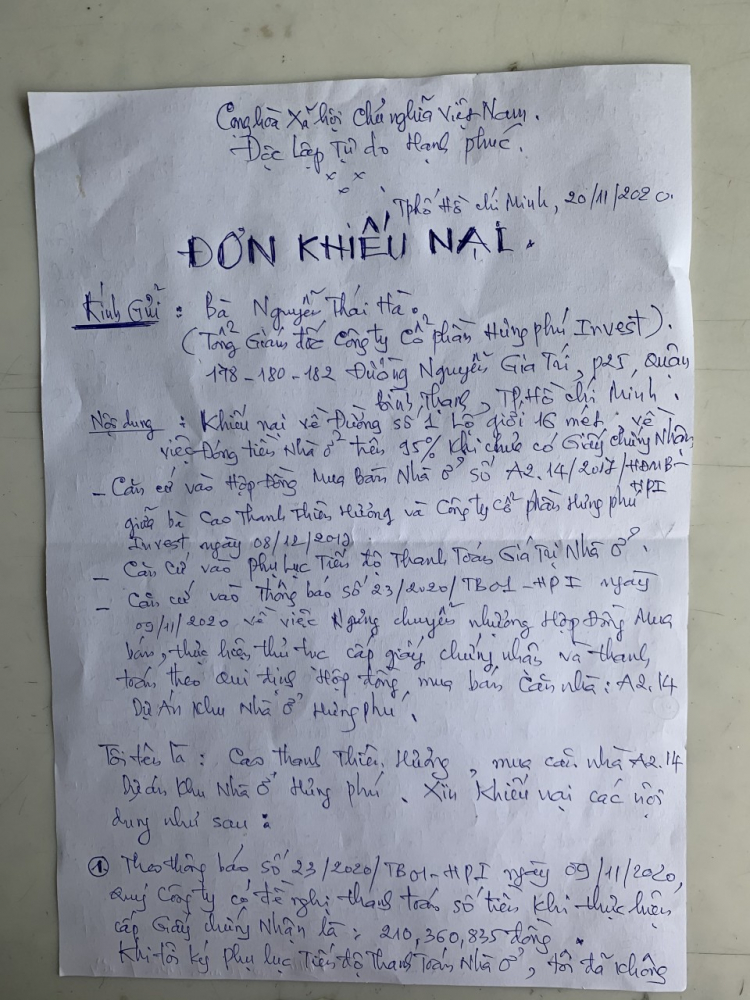 Cộng hòa Xã hội chủ nghĩa Việt Nam.
Độc Lập Tự do Hạnh phúc.
x x x
TPhố Hồ Chí Minh, 20/11/2020.
ĐƠN KHIẾU NẠI.
Kính Gửi : Bà Nguyễn Thái Hà.
(Tổng Giám đốc Công ty Cổ phần Hưng phú Invest).
178-180-182 Đường Nguyễn Gia Trí, p25, Quận
Bình Thạnh, TP. Hồ Chí Minh.
Nội dung : Khiếu nại về Đường số 1 Lộ giới 16 mét, về
việc Đóng tiền Nhà ở trên 95% khi chưa có Giấy chứng Nhận
- Căn cứ vào Hợp Đồng Mua Bán Nhà ở số A2.14/2017/HĐMB-
HPI
giữa bà Cao Thanh Thiên Hương và Công ty Cổ phần Hưng phú
Invest ngày 08/12/2017.
- Căn cứ vào phụ Lục Tiến độ Thanh Toán Giá Trị Nhà ở.
- Căn cứ vào Thông báo số 23/2020/TB01-HPI ngày
09/11/2020 về việc Ngừng chuyển nhượng Hợp Đồng Mua
bán, thực hiện thủ tục cấp giấy chứng nhận và thanh
toán theo qui định Hợp đồng mua bán Căn nhà: A2.14
Dự Án Khu Nhà ở Hưng Phú.
Tôi tên là : Cao Thanh Thiên Hương, mua căn nhà A2.14
Dự án Khu Nhà ở Hưng phú. Xin khiếu nại các nội
dung như sau :
① Theo thông báo số 23/2020/TB01-HPI ngày 09/11/2020,
Quý Công ty có đề nghị thanh toán số tiền khi thực hiện
cấp Giấy chứng Nhận là: 210,360,835 đồng.
Khi tôi ký phụ lục Tiến độ Thanh Toán Nhà ở, tôi đã không